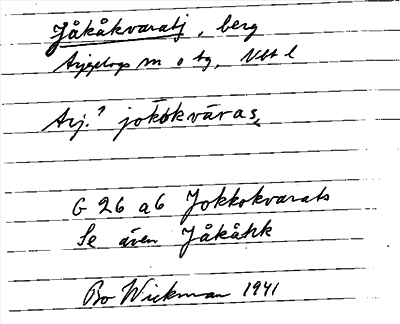 Jåkåkvaratj, berg
Arjeplogs sn o tg, Nbt l
Arj.? jokokvāras
G 26 a6 Jokkokvarats
Se även Jåkåtjkk
Bo Wickman 1941